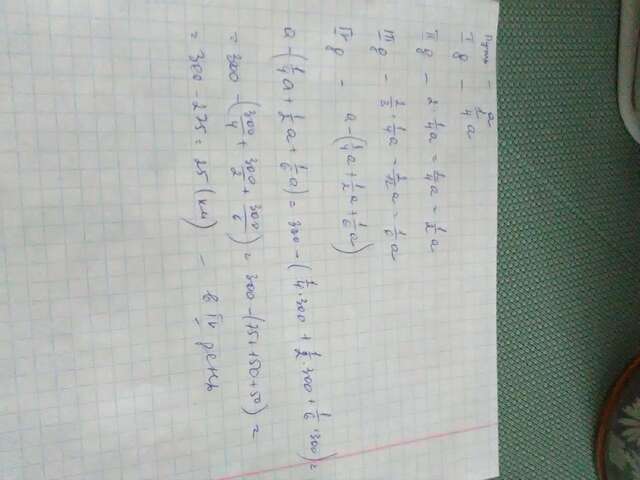 Путь - a
I д - 1/4 a
II д - 2·1/4 a = 2/4 a = 1/2 a
III д - 2/3·1/4 a = 2/12 a = 1/6 a
IV д - a-(1/4 a + 1/2 a + 1/6 a)
a-(1/4 a + 1/2 a + 1/6 a) = 300-(1/4·300 + 1/2·300 + 1/6·300) =
= 300-(300/4 + 300/2 + 300/6) = 300-(75+150+50) =
= 300-275 = 25 (км) - в IV день